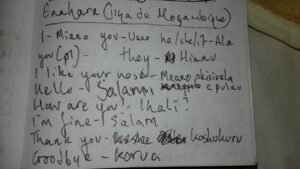 Enahara (Ilha de Moçambique)
I - Miano you - Uano he/she/it - Ala
you (pl) they - Hianu
I like your nose - Meano okisivela
epulau
Hello - Salama
How are you? - Ihali?
I'm fine - Salam
Thank you - koshukuru
Goodbye - korva